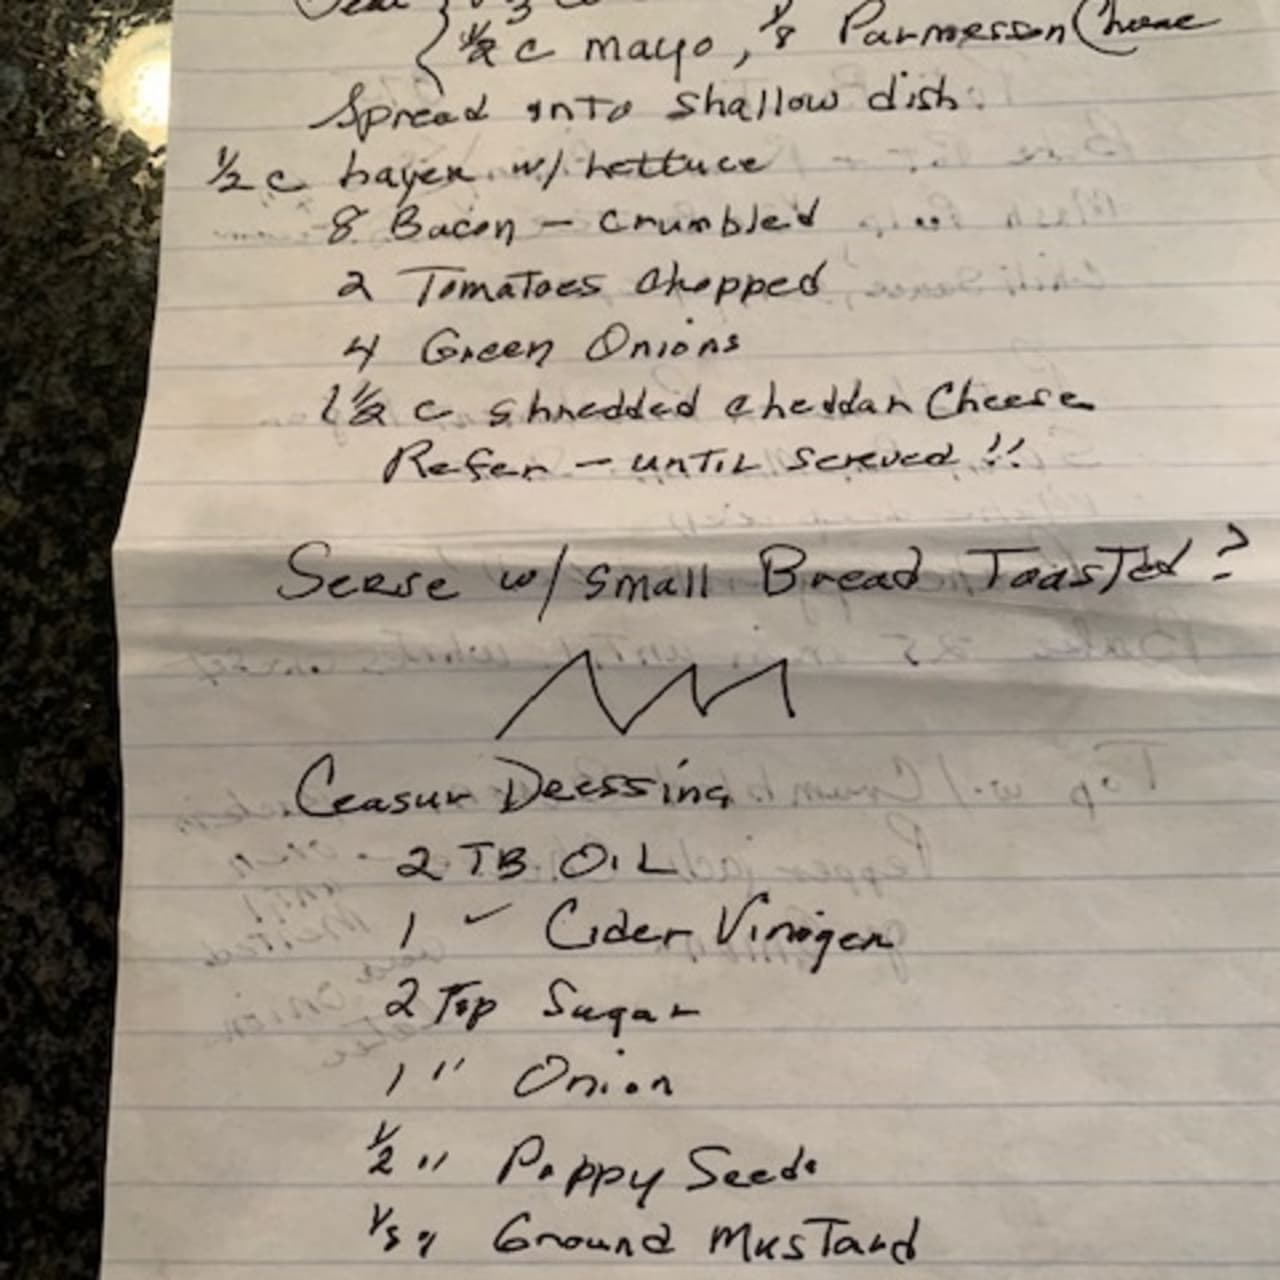 ½ c mayo, ⅛ Parmesson Cheese
Spread into shallow dish.
½ c Layer w/ Lettuce
8 Bacon - Crumbled
2 Tomatoes Chopped
4 Green Onions
1½ c shredded cheddar Cheese
Refer - until screved !!
Serse w/ small Bread Toasted?
Ceasur Dressing
2 TB OIL
1 " Cider Vinigen
2 Tsp Sugar
1 " Onion
½ " Poppy Seeds
⅛ " Ground Mustard